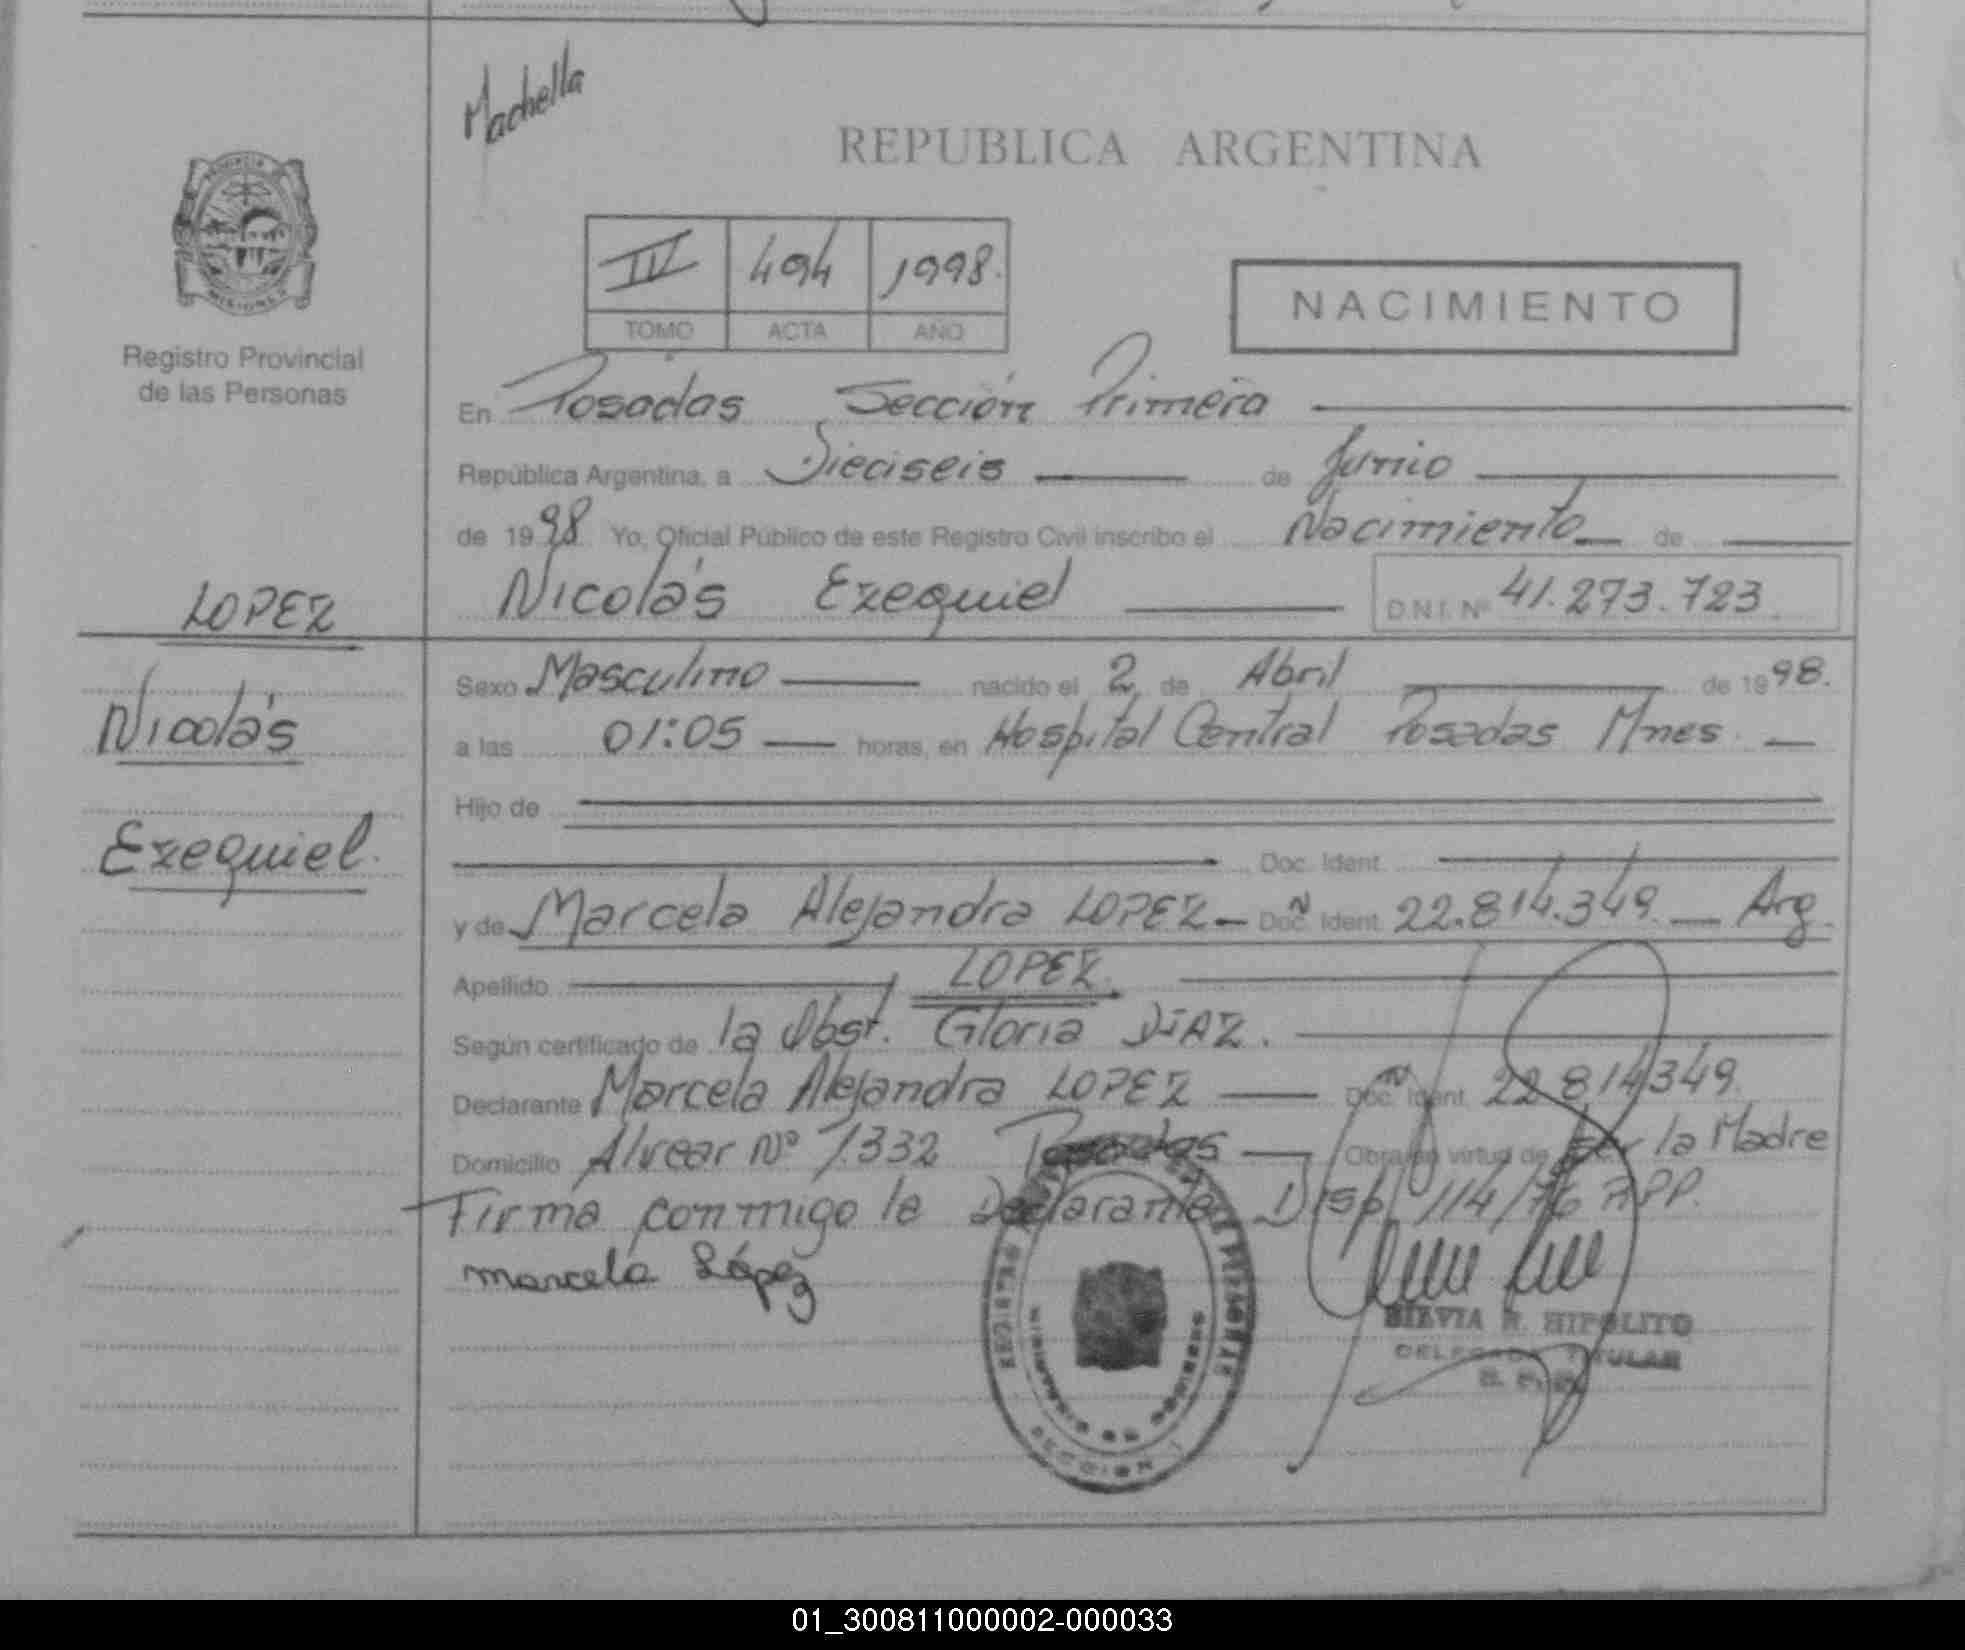 Machella
REPUBLICA ARGENTINA
PROVINCIA
MISIONES
IV 494 1998.
TOMO ACTA AÑO
NACIMIENTO
Registro Provincial
de las Personas
En Posadas Sección Primera
República Argentina, a Dieciseis de Junio
de 1998 Yo, Oficial Público de este Registro Civil inscribo el Nacimiento de
Nicolás Ezequiel D.N.I. Nº 41.273.723
LOPEZ
Nicolás
Ezequiel.
Sexo Masculino nacido el 2 de Abril de 1998.
a las 01:05 horas, en Hospital Central Posadas Mnes.
Hijo de
Doc. Ident.
y de Marcela Alejandra LOPEZ Doc. Ident. 22.814.349 Arg.
Apellido LOPEZ.
Según certificado de la Obst. Gloria DIAZ.
Declarante Marcela Alejandra LOPEZ Doc. Ident. 22.814349.
Domicilio Alvear Nº 1332 Posadas Obra en virtud de ser la Madre
Firma conmigo la Declarante Disp. 114/76 RPP.
marcela López
SILVIA R. HIPOLITO
DELEGADA TITULAR
SECCION
01_300811000002-000033